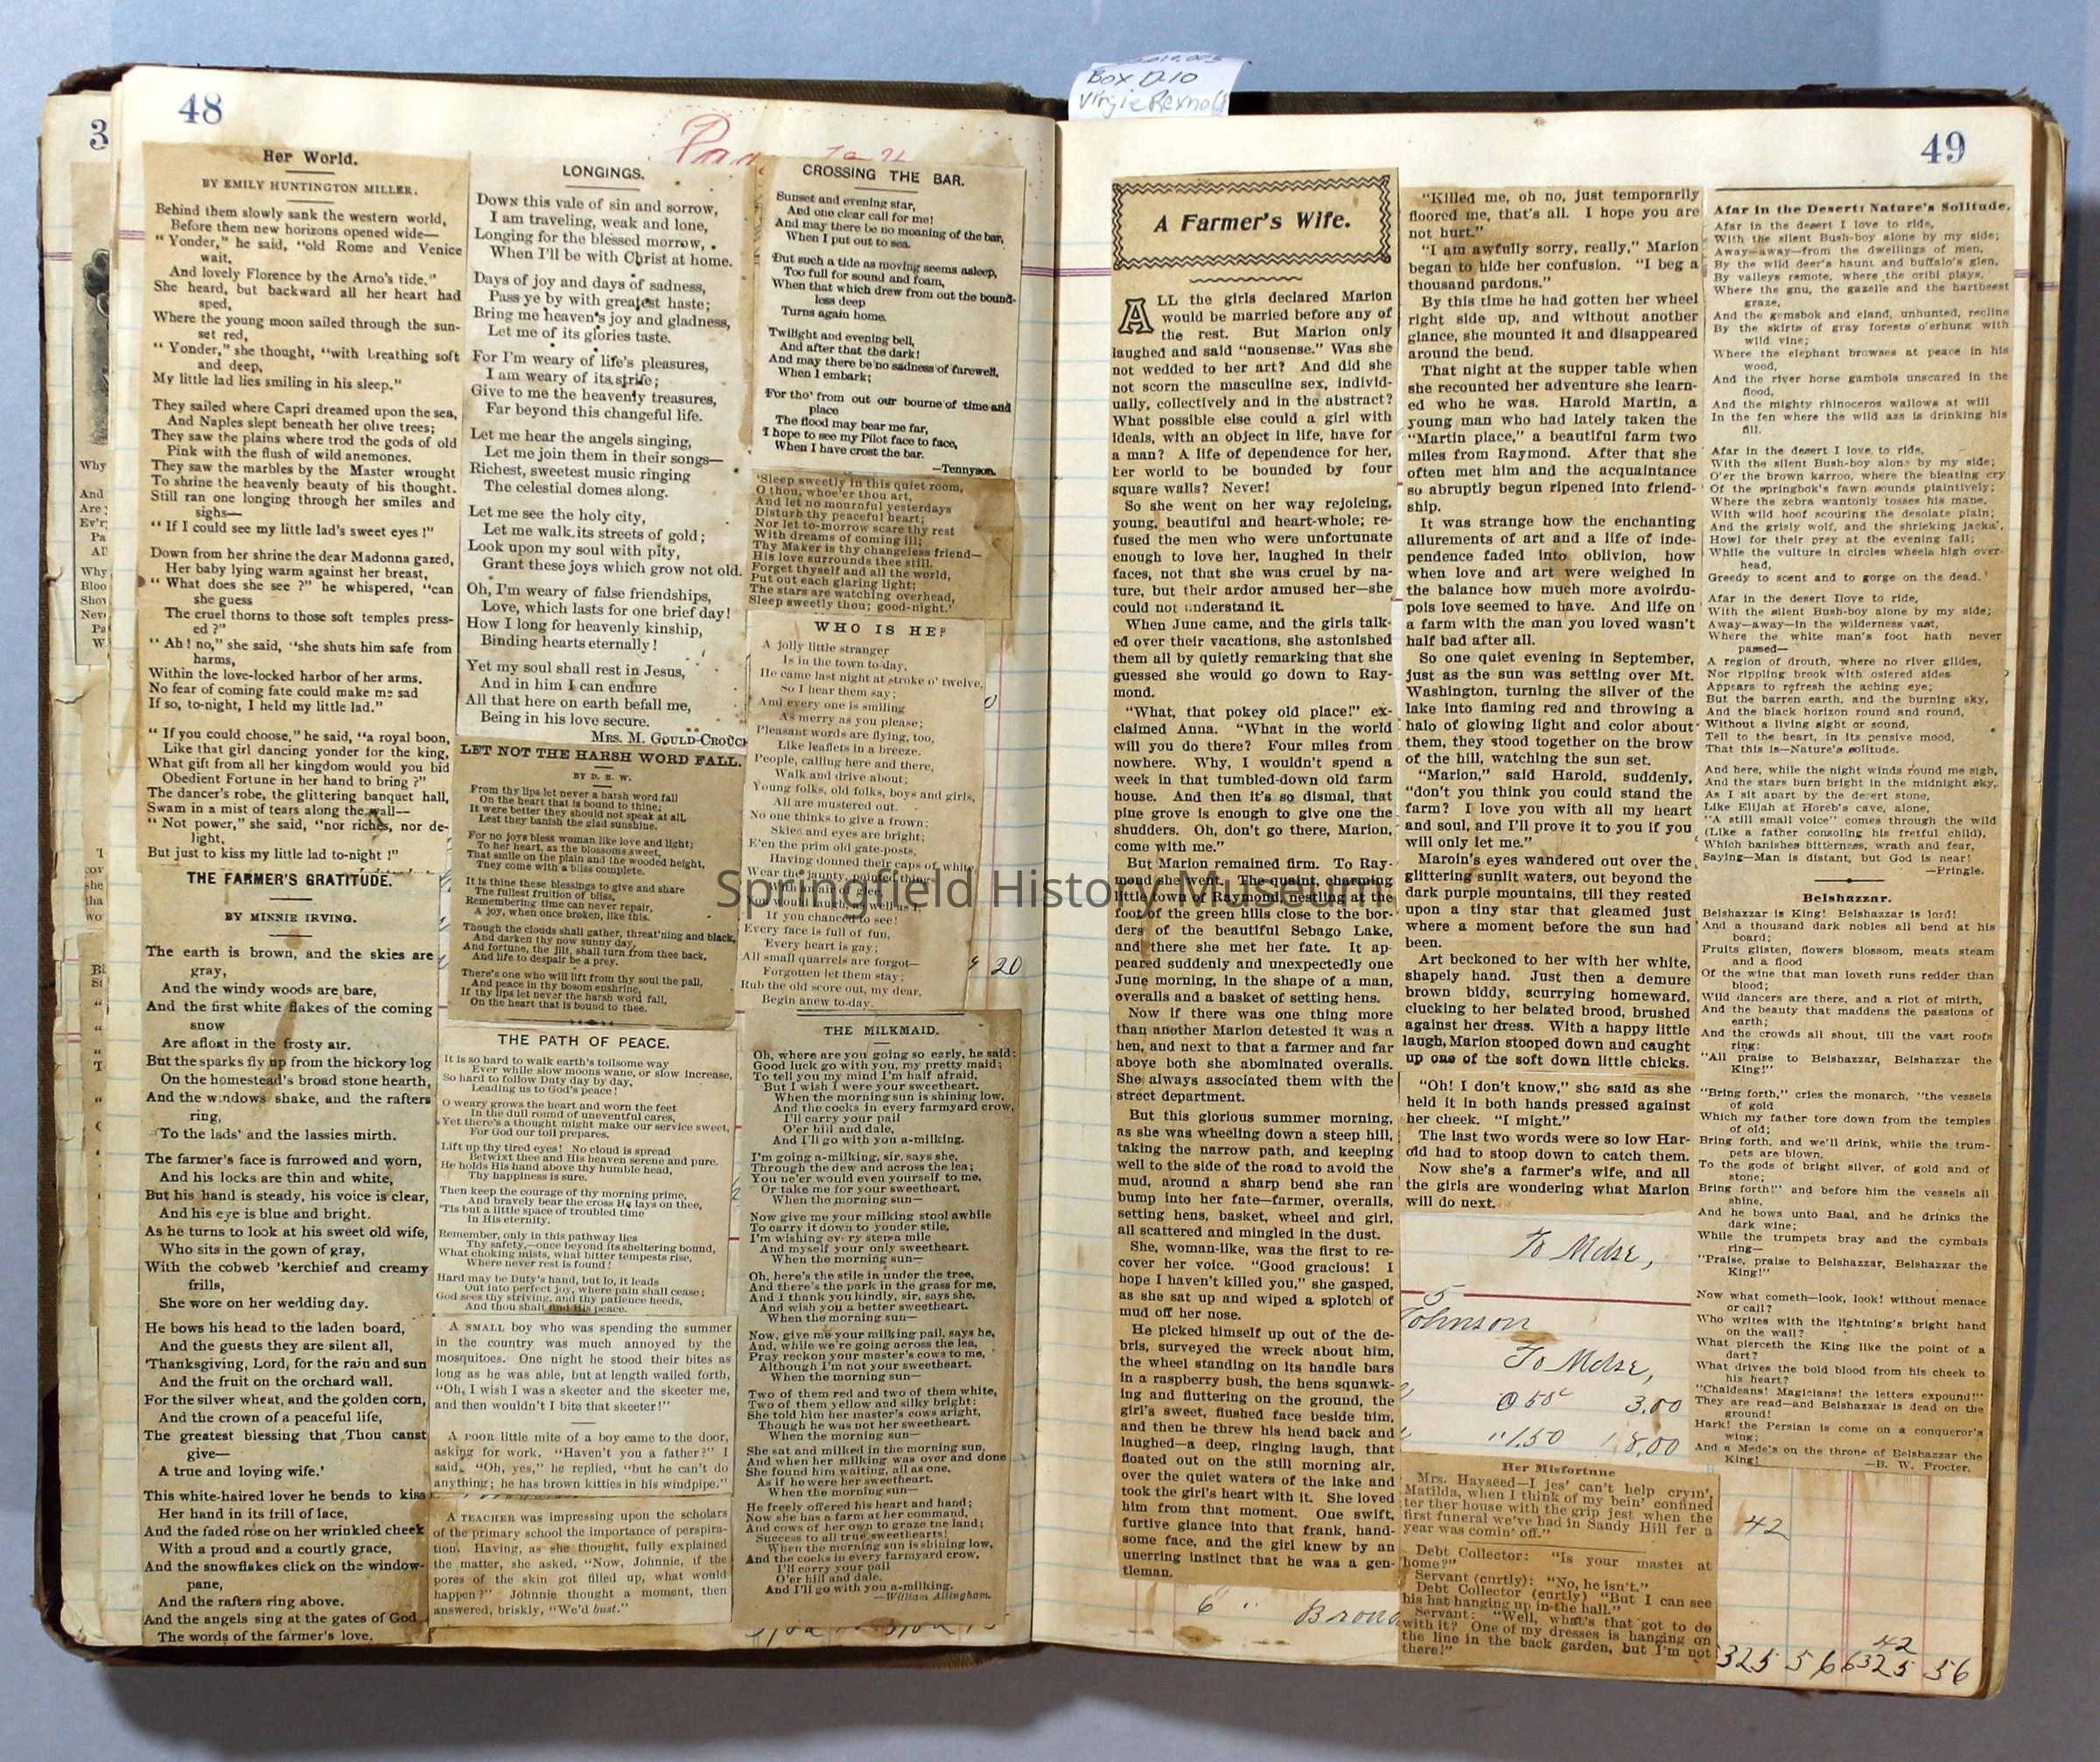 Box D-10
48
Her World.
BY EMILY HUNTINGTON MILLER.
Behind them slowly sank the western world,
Before them new horizons opened wide—
"Yonder," he said, "old Rome and Venice
wait,
And lovely Florence by the Arno's tide."
She heard, but backward all her heart had
sped,
Where the young moon sailed through the sun-
set red,
"Yonder," she thought, "with breathing soft
and deep,
My little lad lies smiling in his sleep."
They sailed where Capri dreamed upon the sea,
And Naples slept beneath her olive trees;
They saw the plains where trod the gods of old
Pink with the flush of wild anemones.
They saw the marbles by the Master wrought
To shrine the heavenly beauty of his thought.
Still ran one longing through her smiles and
sighs—
"If I could see my little lad's sweet eyes!"
Down from her shrine the dear Madonna gazed,
Her baby lying warm against her breast,
"What does she see?" he whispered, "can
she guess
The cruel thorns to those soft temples press-
ed?"
"Ah! no," she said, "she shuts him safe from
harms,
Within the love-locked harbor of her arms.
No fear of coming fate could make me sad
If so, to-night, I held my little lad."
"If you could choose," he said, "a royal boon,
Like that girl dancing yonder for the king,
What gift from all her kingdom would you bid
Obedient Fortune in her hand to bring?"
The dancer's robe, the glittering banquet hall,
Swam in a mist of tears along the wall—
"Not power," she said, "nor riches, nor de-
light,
But just to kiss my little lad to-night!"
THE FARMER'S GRATITUDE.
BY MINNIE IRVING.
The earth is brown, and the skies are
gray,
And the windy woods are bare,
And the first white flakes of the coming
snow
Are afloat in the frosty air.
But the sparks fly up from the hickory log
On the homestead's broad stone hearth,
And the windows shake, and the rafters
ring,
To the lads' and the lassies mirth.
The farmer's face is furrowed and worn,
And his locks are thin and white,
But his hand is steady, his voice is clear,
And his eye is blue and bright.
As he turns to look at his sweet old wife,
Who sits in the gown of gray,
With the cobweb 'kerchief and creamy
frills,
She wore on her wedding day.
He bows his head to the laden board,
And the guests they are silent all,
'Thanksgiving, Lord, for the rain and sun
And the fruit on the orchard wall.
For the silver wheat, and the golden corn,
And the crown of a peaceful life,
The greatest blessing that Thou canst
give—
A true and loving wife.'
This white-haired lover he bends to kiss
Her hand in its frill of lace,
And the faded rose on her wrinkled cheek
With a proud and a courtly grace,
And the snowflakes click on the window-
pane,
And the rafters ring above.
And the angels sing at the gates of God
The words of the farmer's love.
LONGINGS.
Down this vale of sin and sorrow,
I am traveling, weak and lone,
Longing for the blessed morrow,
When I'll be with Christ at home.
Days of joy and days of sadness,
Pass ye by with greatest haste;
Bring me heaven's joy and gladness,
Let me of its glories taste.
For I'm weary of life's pleasures,
I am weary of its strife;
Give to me the heavenly treasures,
Far beyond this changeful life.
Let me hear the angels singing,
Let me join them in their songs—
Richest, sweetest music ringing
The celestial domes along.
Let me see the holy city,
Let me walk its streets of gold;
Look upon my soul with pity,
Grant these joys which grow not old.
Oh, I'm weary of false friendships,
Love, which lasts for one brief day!
How I long for heavenly kinship,
Binding hearts eternally!
Yet my soul shall rest in Jesus,
And in him I can endure
All that here on earth befall me,
Being in his love secure.
MRS. M. GOULD-CROUCH
LET NOT THE HARSH WORD FALL.
BY D. B. W.
From thy lips let never a harsh word fall
On the heart that is bound to thine;
It were better they should not speak at all,
Lest they banish the glad sunshine.
For no joys bless woman like love and light;
To her heart, as the blossoms sweet,
That smile on the plain and the wooded height,
They come with a bliss complete.
It is thine these blessings to give and share
The fullest fruition of bliss,
Remembering time can never repair,
A joy, when once broken, like this.
Though the clouds shall gather, threat'ning and black,
And darken thy now sunny day,
And fortune, the jilt, shall turn from thee back,
And life to despair be a prey.
There's one who will lift from thy soul the pall,
And peace in thy bosom enshrine,
If thy lips let never the harsh word fall,
On the heart that is bound to thee.
THE PATH OF PEACE.
It is so hard to walk earth's toilsome way
Ever while slow moons wane, or slow increase,
So hard to follow Duty day by day,
Leading us to God's peace!
O weary grows the heart and worn the feet
In the dull round of uneventful cares,
Yet there's a thought might make our service sweet,
For God our toil prepares.
Lift up thy tired eyes! No cloud is spread
Betwixt thee and His heaven serene and pure.
He holds His hand above thy humble head,
Thy happiness is sure.
Then keep the courage of thy morning prime,
And bravely bear the cross He lays on thee,
'Tis but a little space of troubled time
In His eternity.
Remember, only in this pathway lies
Thy safety,—once beyond its sheltering bound,
What choking mists, what bitter tempests rise,
Where never rest is found!
Hard may be Duty's hand, but lo, it leads
Out into perfect joy, where pain shall cease;
God sees thy striving, and thy patience heeds,
And thou shalt find His peace.
A SMALL boy who was spending the summer
in the country was much annoyed by the
mosquitoes. One night he stood their bites as
long as he was able, but at length wailed forth,
"Oh, I wish I was a skeeter and the skeeter me,
and then wouldn't I bite that skeeter!"
A POOR little mite of a boy came to the door,
asking for work. "Haven't you a father?" I
said. "Oh, yes," he replied, "but he can't do
anything; he has brown kitties in his windpipe."
A TEACHER was impressing upon the scholars
of the primary school the importance of perspira-
tion. Having, as she thought, fully explained
the matter, she asked, "Now, Johnnie, if the
pores of the skin got filled up, what would
happen?" Johnnie thought a moment, then
answered, briskly, "We'd bust."
CROSSING THE BAR.
Sunset and evening star,
And one clear call for me!
And may there be no moaning of the bar,
When I put out to sea.
But such a tide as moving seems asleep,
Too full for sound and foam,
When that which drew from out the bound-
less deep
Turns again home.
Twilight and evening bell,
And after that the dark!
And may there be no sadness of farewell,
When I embark;
For tho' from out our bourne of time and
place
The flood may bear me far,
I hope to see my Pilot face to face,
When I have crost the bar.
—Tennyson.
'Sleep sweetly in this quiet room,
O thou, whoe'er thou art,
And let no mournful yesterdays
Disturb thy peaceful heart;
Nor let to-morrow scare thy rest
With dreams of coming ill;
Thy Maker is thy changeless friend—
His love surrounds thee still.
Forget thyself and all the world,
Put out each glaring light;
The stars are watching overhead,
Sleep sweetly thou; good-night.'
WHO IS HE?
A jolly little stranger
Is in the town to-day,
He came last night at stroke o' twelve,
So I hear them say;
And every one is smiling
As merry as you please;
Pleasant words are flying, too,
Like leaflets in a breeze.
People, calling here and there,
Walk and drive about;
Young folks, old folks, boys and girls,
All are mustered out.
No one thinks to give a frown;
Skies and eyes are bright;
E'en the prim old gate-posts,
Having donned their caps of white
Wear the jaunty, pointed things
With of glee
would laugh, as well as I,
If you chanced to see!
Every face is full of fun,
Every heart is gay;
All small quarrels are forgot—
Forgotten let them stay;
Rub the old score out, my dear,
Begin anew to-day.
20
THE MILKMAID.
Oh, where are you going so early, he said;
Good luck go with you, my pretty maid;
To tell you my mind I'm half afraid,
But I wish I were your sweetheart.
When the morning sun is shining low,
And the cocks in every farmyard crow,
I'll carry your pail
O'er hill and dale,
And I'll go with you a-milking.
I'm going a-milking, sir, says she,
Through the dew and across the lea;
You ne'er would even yourself to me,
Or take me for your sweetheart.
When the morning sun—
Now give me your milking stool awhile
To carry it down to yonder stile,
I'm wishing every step a mile
And myself your only sweetheart.
When the morning sun—
Oh, here's the stile in under the tree,
And there's the park in the grass for me,
And I thank you kindly, sir, says she,
And wish you a better sweetheart.
When the morning sun—
Now, give me your milking pail, says he,
And, while we're going across the lea,
Pray reckon your master's cows to me,
Although I'm not your sweetheart.
When the morning sun—
Two of them red and two of them white,
Two of them yellow and silky bright;
She told him her master's cows aright,
Though he was not her sweetheart.
When the morning sun—
She sat and milked in the morning sun,
And when her milking was over and done
She found him waiting, all as one,
As if he were her sweetheart.
When the morning sun—
He freely offered his heart and hand;
Now she has a farm at her command,
And cows of her own to graze the land;
Success to all true sweethearts!
When the morning sun is shining low,
And the cocks in every farmyard crow,
I'll carry your pail
O'er hill and dale,
And I'll go with you a-milking.
—William Allingham.
Springfield History Museum
49
A Farmer's Wife.
ALL the girls declared Marion
would be married before any of
the rest. But Marion only
laughed and said "nonsense." Was she
not wedded to her art? And did she
not scorn the masculine sex, individ-
ually, collectively and in the abstract?
What possible else could a girl with
ideals, with an object in life, have for
a man? A life of dependence for her,
her world to be bounded by four
square walls? Never!
So she went on her way rejoicing,
young, beautiful and heart-whole; re-
fused the men who were unfortunate
enough to love her, laughed in their
faces, not that she was cruel by na-
ture, but their ardor amused her—she
could not understand it.
When June came, and the girls talk-
ed over their vacations, she astonished
them all by quietly remarking that she
guessed she would go down to Ray-
mond.
"What, that pokey old place!" ex-
claimed Anna. "What in the world
will you do there? Four miles from
nowhere. Why, I wouldn't spend a
week in that tumbled-down old farm
house. And then it's so dismal, that
pine grove is enough to give one the
shudders. Oh, don't go there, Marion,
come with me."
But Marion remained firm. To Ray-
mond she went. The quaint, charming
little town of Raymond, nestling at the
foot of the green hills close to the bor-
ders of the beautiful Sebago Lake,
and there she met her fate. It ap-
peared suddenly and unexpectedly one
June morning, in the shape of a man,
overalls and a basket of setting hens.
Now if there was one thing more
than another Marion detested it was a
hen, and next to that a farmer and far
above both she abominated overalls.
She always associated them with the
street department.
But this glorious summer morning,
as she was wheeling down a steep hill,
taking the narrow path, and keeping
well to the side of the road to avoid the
mud, around a sharp bend she ran
bump into her fate—farmer, overalls,
setting hens, basket, wheel and girl,
all scattered and mingled in the dust.
She, woman-like, was the first to re-
cover her voice. "Good gracious! I
hope I haven't killed you," she gasped,
as she sat up and wiped a splotch of
mud off her nose.
He picked himself up out of the de-
bris, surveyed the wreck about him,
the wheel standing on its handle bars
in a raspberry bush, the hens squawk-
ing and fluttering on the ground, the
girl's sweet, flushed face beside him,
and then he threw his head back and
laughed—a deep, ringing laugh, that
floated out on the still morning air,
over the quiet waters of the lake and
took the girl's heart with it. She loved
him from that moment. One swift,
furtive glance into that frank, hand-
some face, and the girl knew by an
unerring instinct that he was a gen-
tleman.
6 "
"Killed me, oh no, just temporarily
floored me, that's all. I hope you are
not hurt."
"I am awfully sorry, really," Marion
began to hide her confusion. "I beg a
thousand pardons."
By this time he had gotten her wheel
right side up, and without another
glance, she mounted it and disappeared
around the bend.
That night at the supper table when
she recounted her adventure she learn-
ed who he was. Harold Martin, a
young man who had lately taken the
"Martin place," a beautiful farm two
miles from Raymond. After that she
often met him and the acquaintance
so abruptly begun ripened into friend-
ship.
It was strange how the enchanting
allurements of art and a life of inde-
pendence faded into oblivion, how
when love and art were weighed in
the balance how much more avoirdu-
pois love seemed to have. And life on
a farm with the man you loved wasn't
half bad after all.
So one quiet evening in September,
just as the sun was setting over Mt.
Washington, turning the silver of the
lake into flaming red and throwing a
halo of glowing light and color about
them, they stood together on the brow
of the hill, watching the sun set.
"Marion," said Harold, suddenly,
"don't you think you could stand the
farm? I love you with all my heart
and soul, and I'll prove it to you if you
will only let me."
Maroin's eyes wandered out over the
glittering sunlit waters, out beyond the
dark purple mountains, till they rested
upon a tiny star that gleamed just
where a moment before the sun had
been.
Art beckoned to her with her white,
shapely hand. Just then a demure
brown biddy, scurrying homeward,
clucking to her belated brood, brushed
against her dress. With a happy little
laugh, Marion stooped down and caught
up one of the soft down little chicks.
"Oh! I don't know," she said as she
held it in both hands pressed against
her cheek. "I might."
The last two words were so low Har-
old had to stoop down to catch them.
Now she's a farmer's wife, and all
the girls are wondering what Marion
will do next.
To Mdse,
5
Johnson
To Mdse,
@ 50¢ 3.00
" 1.50 18.00
Her Misfortune
Mrs. Hayseed—I jes' can't help cryin',
Matilda, when I think of my bein' confined
ter ther house with the grip jest when the
first funeral we've had in Sandy Hill fer a
year was comin' off."
Debt Collector: "Is your master at
home?"
Servant (curtly): "No, he isn't."
Debt Collector (curtly) "But I can see
his hat hanging up in the hall."
Servant: "Well, what's that got to do
with it? One of my dresses is hanging on
the line in the back garden, but I'm not
there!"
Afar in the Desert: Nature's Solitude.
Afar in the desert I love to ride,
With the silent Bush-boy alone by my side;
Away—away—from the dwellings of men,
By the wild deer's haunt and buffalo's glen,
By valleys remote, where the oribi plays,
Where the gnu, the gazelle and the hartbeest
graze,
And the gemsbok and eland, unhunted, recline
By the skirts of gray forests o'erhung with
wild vine;
Where the elephant browses at peace in his
wood,
And the river horse gambols unscared in the
flood,
And the mighty rhinoceros wallows at will
In the fen where the wild ass is drinking his
fill.
Afar in the desert I love to ride,
With the silent Bush-boy alone by my side;
O'er the brown karroo, where the bleating cry
Of the springbok's fawn sounds plaintively;
Where the zebra wantonly tosses his mane,
With wild hoof scouring the desolate plain;
And the grisly wolf, and the shrieking jackal,
Howl for their prey at the evening fall;
While the vulture in circles wheels high over-
head,
Greedy to scent and to gorge on the dead.
Afar in the desert I love to ride,
With the silent Bush-boy alone by my side;
Away—away—in the wilderness vast,
Where the white man's foot hath never
passed—
A region of drouth, where no river glides,
Nor rippling brook with osiered sides
Appears to refresh the aching eye;
But the barren earth, and the burning sky,
And the black horizon round and round,
Without a living sight or sound,
Tell to the heart, in its pensive mood,
That this is—Nature's solitude.
And here, while the night winds round me sigh,
And the stars burn bright in the midnight sky,
As I sit apart by the desert stone,
Like Elijah at Horeb's cave, alone,
"A still small voice" comes through the wild
(Like a father consoling his fretful child),
Which banishes bitterness, wrath and fear,
Saying—Man is distant, but God is near!
—Pringle.
Belshazzar.
Belshazzar is King! Belshazzar is lord!
And a thousand dark nobles all bend at his
board;
Fruits glisten, flowers blossom, meats steam
and a flood
Of the wine that man loveth runs redder than
blood;
Wild dancers are there, and a riot of mirth,
And the beauty that maddens the passions of
earth;
And the crowds all shout, till the vast roofs
ring:
"All praise to Belshazzar, Belshazzar the
King!"
"Bring forth," cries the monarch, "the vessels
of gold
Which my father tore down from the temples
of old;
Bring forth, and we'll drink, while the trum-
pets are blown,
To the gods of bright silver, of gold and of
stone;
Bring forth!" and before him the vessels all
shine,
And he bows unto Baal, and he drinks the
dark wine;
While the trumpets bray and the cymbals
ring—
"Praise, praise to Belshazzar, Belshazzar the
King!"
Now what cometh—look, look! without menace
or call?
Who writes with the lightning's bright hand
on the wall?
What pierceth the King like the point of a
dart?
What drives the bold blood from his cheek to
his heart?
"Chaldeans! Magicians! the letters expound!"
They are read—and Belshazzar is dead on the
ground!
Hark! the Persian is come on a conqueror's
wing;
And a Mede's on the throne of Belshazzar the
King!
—B. W. Procter.
42
42
325 56 6325 56